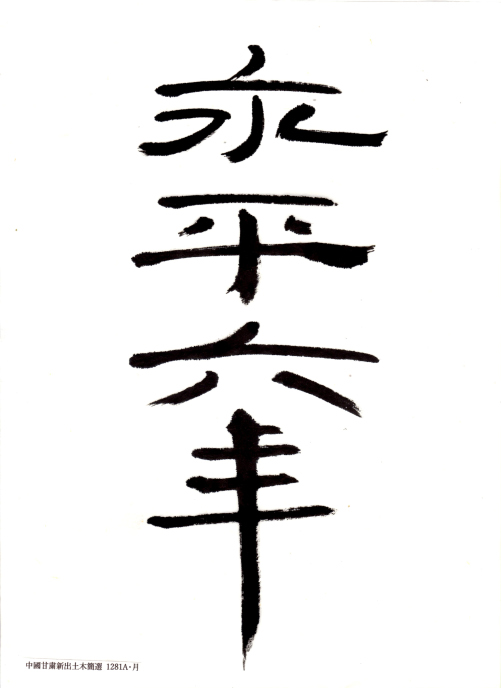 永平六年
中國甘肅新出土木簡選 1281A・月